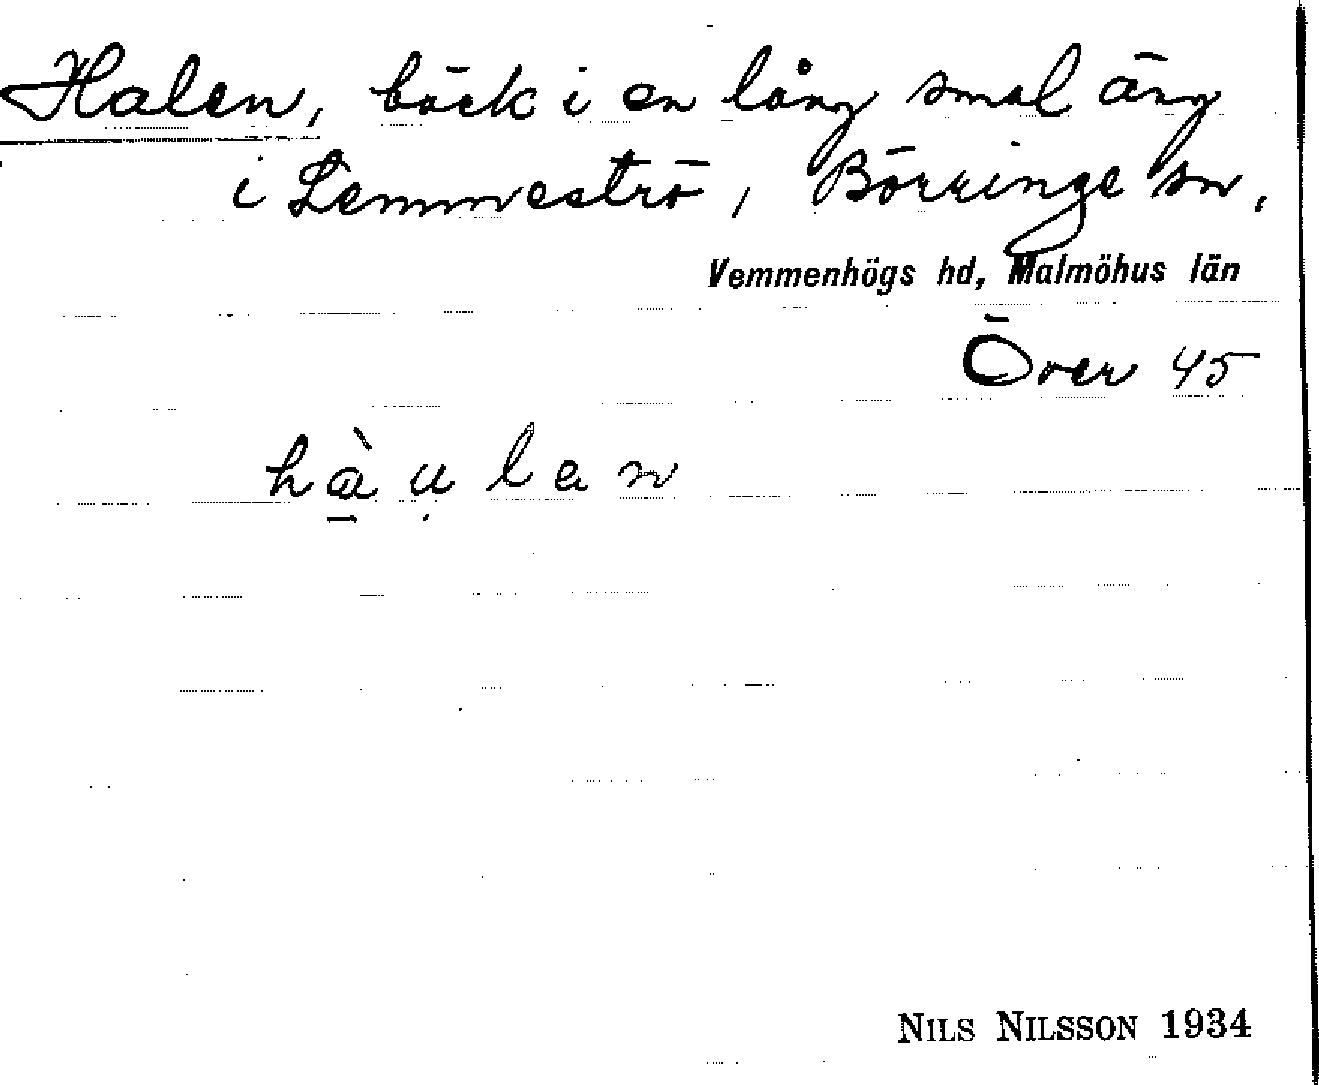 Halen, bäck i en lång smal äng
i Lemmeströ, Börringe sn,
Vemmenhögs hd, Malmöhus län
Över 45
hà̱ụlan
NILS NILSSON 1934